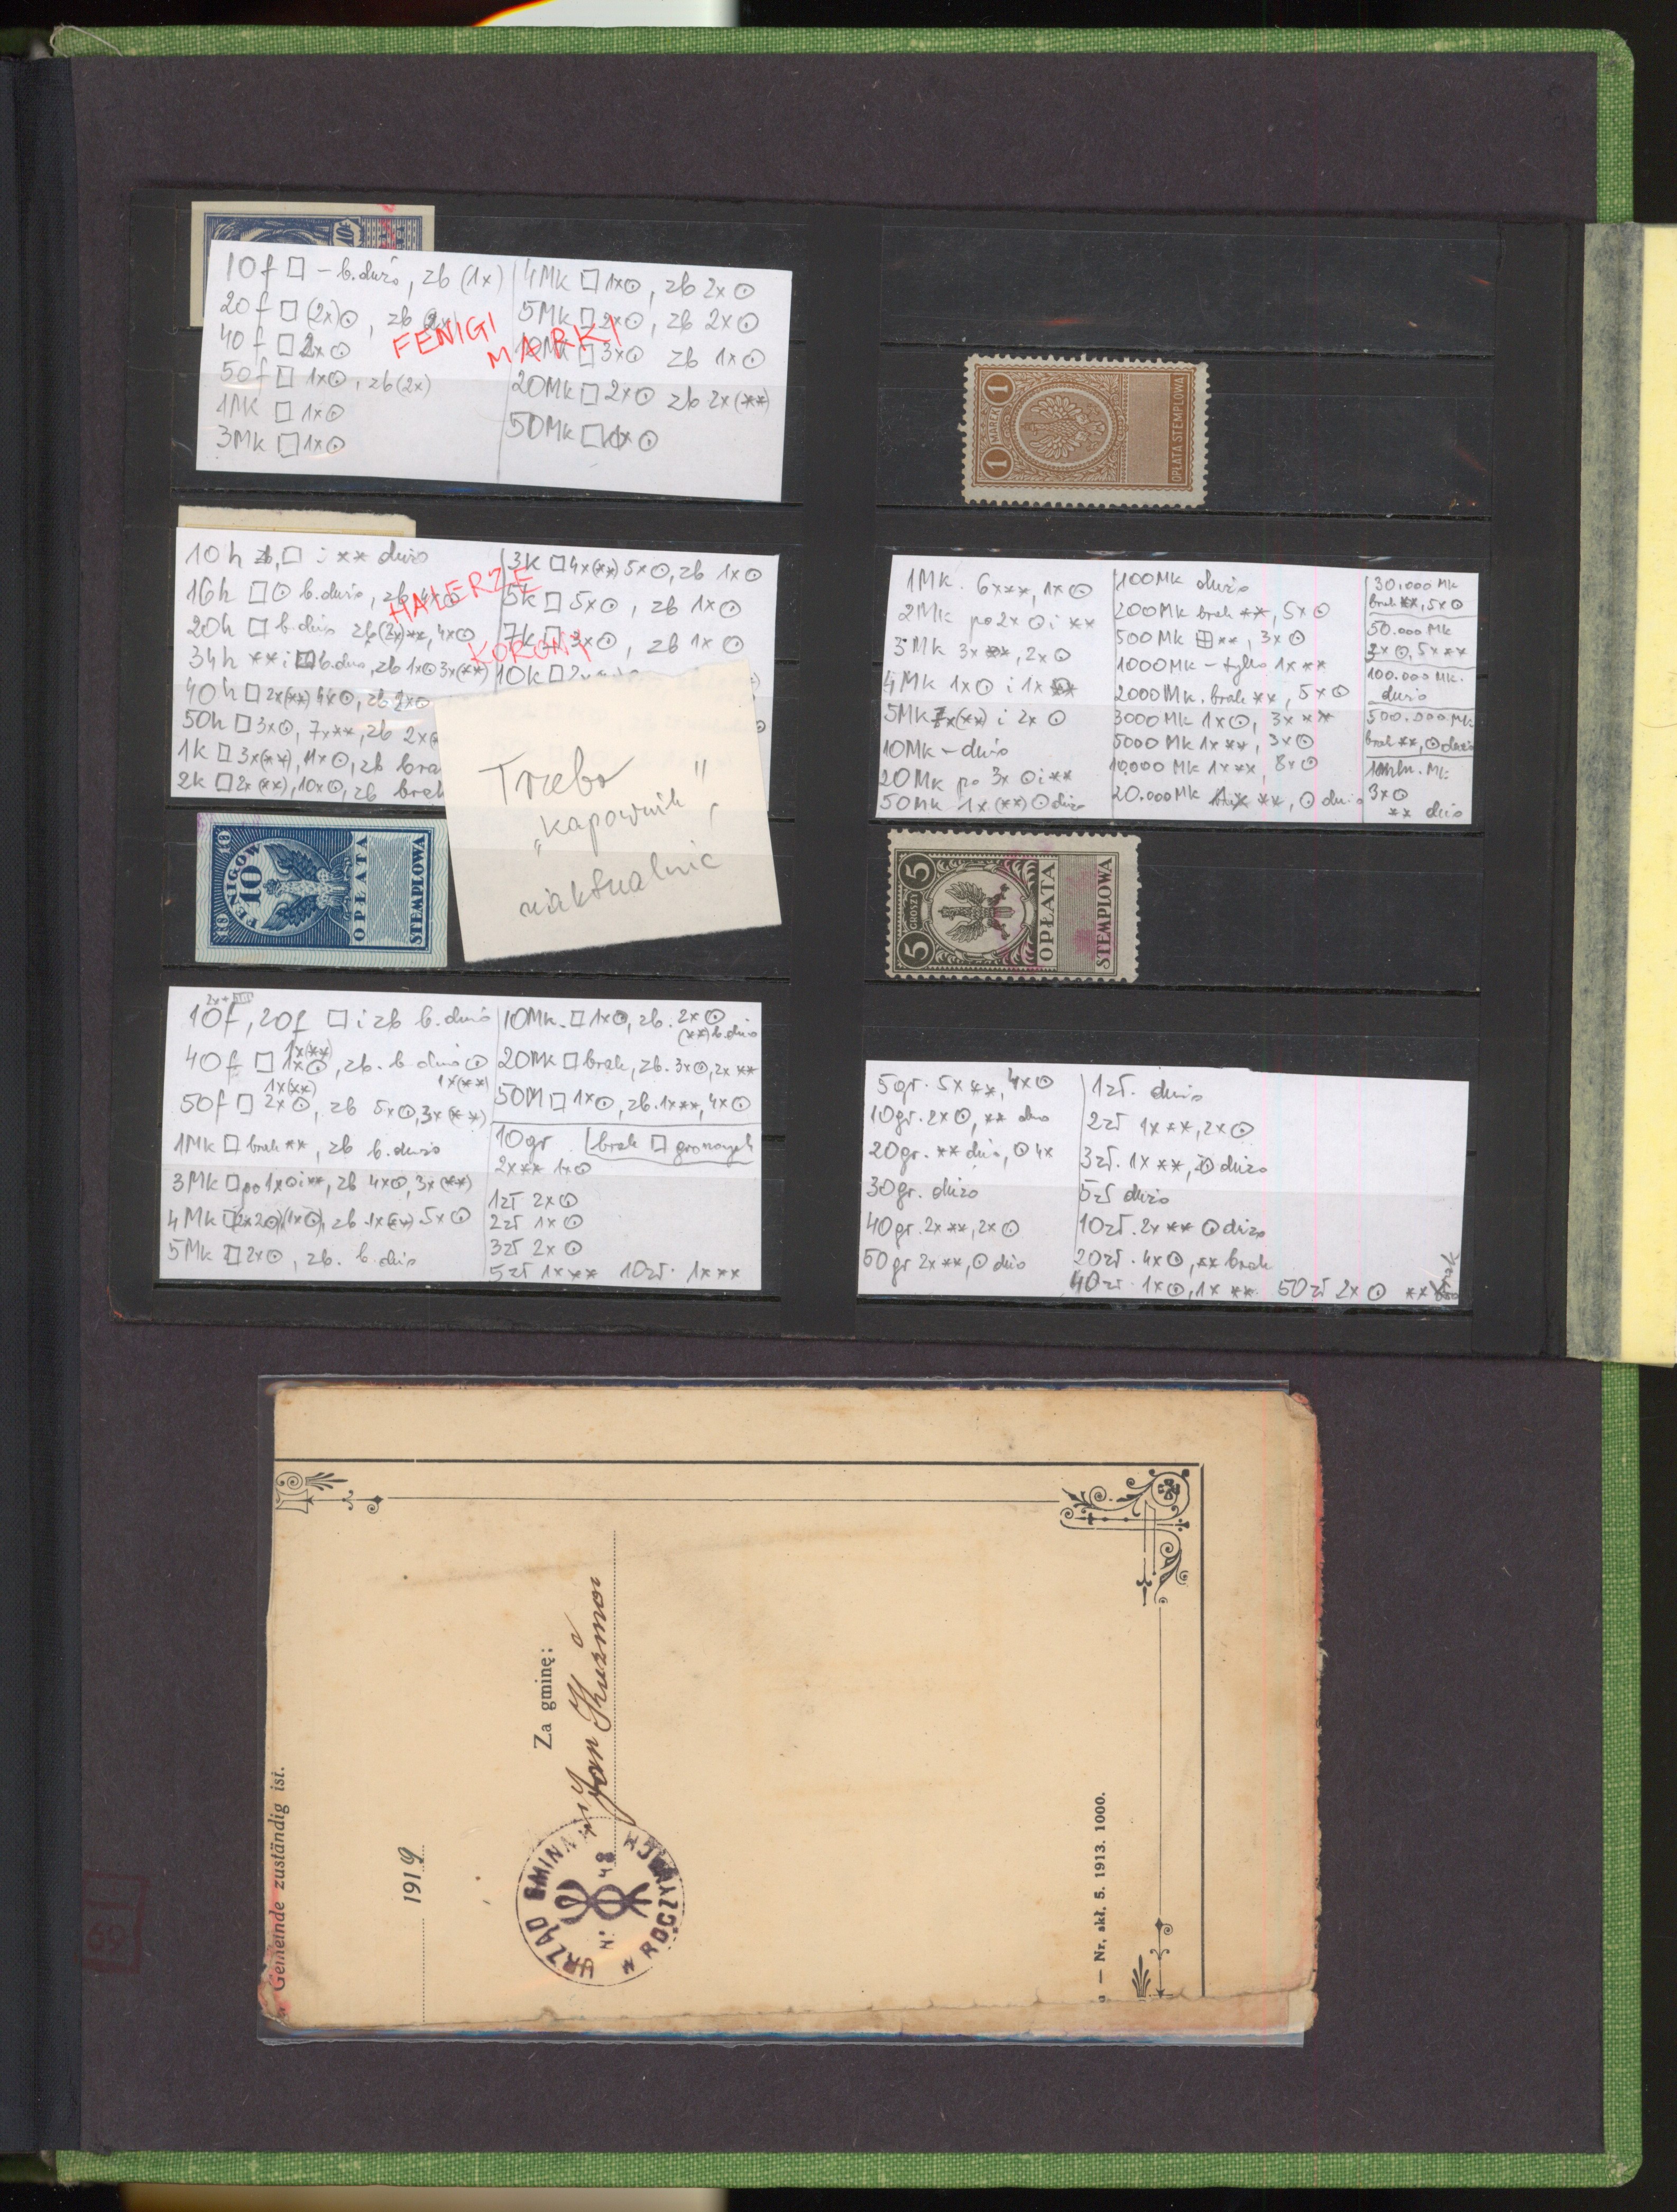 10
10f □ – b. dużo, zb (1x)
20f □ (2x)⊙, zb
40f □ 2x ⊙
50f □ 1x⊙, zb (2x)
1Mk □ 1x⊙
3Mk □ 1x⊙
4Mk □ 1x⊙, zb 2x ⊙
5Mk □ 2x⊙, zb 2x ⊙
10Mk □ 3x⊙ zb 1x ⊙
20Mk □ 2x⊙ zb 2x (**)
50Mk □ ⊙
FENIGI
MARKI
1 MAREK 1
OPŁATA STEMPLOWA
10h zb, □ i ** dużo
16h □ ⊙ b. dużo, zb 4x⊙
20h □ b. dużo zb (2x)**, 4x⊙
34h ** i □ b. dużo, zb 1x⊙ 3x(**)
40h □ 2x(**) 4x⊙, zb 2x⊙
50h □ 3x⊙, 7x**, zb 2x
1k □ 3x(**), 11x⊙, zb bra
2k □ 2x (**), 10x⊙, zb brak
3k □ 4x(**) 5x⊙, zb 1x ⊙
5k □ 5x⊙, zb 1x ⊙
7k □ 3x⊙, zb 1x ⊙
10k □
HALERZE
KORONY
Trzeba
„kapownik”
uaktualnić
1Mk. 6x**, 1x⊙
2Mk po 2x ⊙ i **
3Mk 3x **, 2x⊙
4Mk 1x⊙ i 1x **
5Mk 7x(**) i 2x ⊙
10Mk – dużo
20Mk po 3x ⊙ i **
50Mk 1x (**) ⊙ dużo
100Mk dużo
200Mk brak **, 5x⊙
500Mk ⊞ **, 3x⊙
1000Mk – tylko 1x **
2000Mk. brak **, 5x⊙
3000Mk 1x⊙, 3x **
5000Mk 1x **, 3x⊙
10.000Mk 1x **, 8x⊙
20.000Mk **, ⊙ dużo
30.000 Mk
brak **, 5x⊙
50.000 Mk
2x⊙, 5x**
100.000 Mk.
dużo
500.000 Mk
brak **, ⊙ dużo
1 mln. Mk.
3x⊙
** dużo
10 FENIGÓW 10
10
OPŁATA
STEMPLOWA
5 GROSZY 5
OPŁATA
STEMPLOWA
10f, 20f □ i zb b. dużo
1x(**)
40f □ 1x⊙, zb. b dużo ⊙
1x(**) 1x(**)
50f □ 2x⊙, zb 5x⊙, 3x(**)
1Mk □ brak **, zb b. dużo
3Mk □ po 1x⊙ i **, zb 4x⊙, 3x(**)
4Mk □ (1x⊙), zb 1x(**) 5x⊙
5Mk □ 2x⊙, zb. b. dużo
10Mk. □ 1x⊙, zb. 2x⊙
(**) b. dużo
20Mk □ brak, zb. 3x⊙, 2x **
50M □ 1x⊙, zb. 1x**, 4x⊙
10gr brak □ groszowych
2x** 1x⊙
1zł 2x⊙
2zł 1x⊙
3zł 2x⊙
5zł 1x** 10zł. 1x**
5gr. 5x **, 4x⊙
10gr. 2x⊙, ** dużo
20gr. ** dużo, ⊙ 4x
30gr. dużo
40gr. 2x **, 2x⊙
50gr 2x **, ⊙ dużo
1zł. dużo
2zł 1x **, 2x⊙
3zł. 1x **, ⊙ dużo
5zł dużo
10zł. 2x ** ⊙ dużo
20zł. 4x⊙, ** brak
40zł. 1x⊙, 1x ** 50zł 2x ⊙ ** brak
Gemeinde zuständig ist.
1919
Za gminę:
Jan
URZĄD GMINNY
N. 48
W ROCZYNACH
— Nr. skł. 5. 1913. 1000.